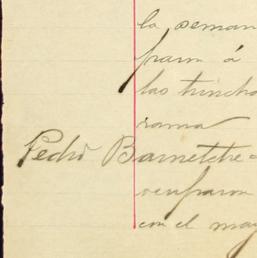 la seman
param á
las trincha
rama
Pedro Barnetche
ocuparon
con el may